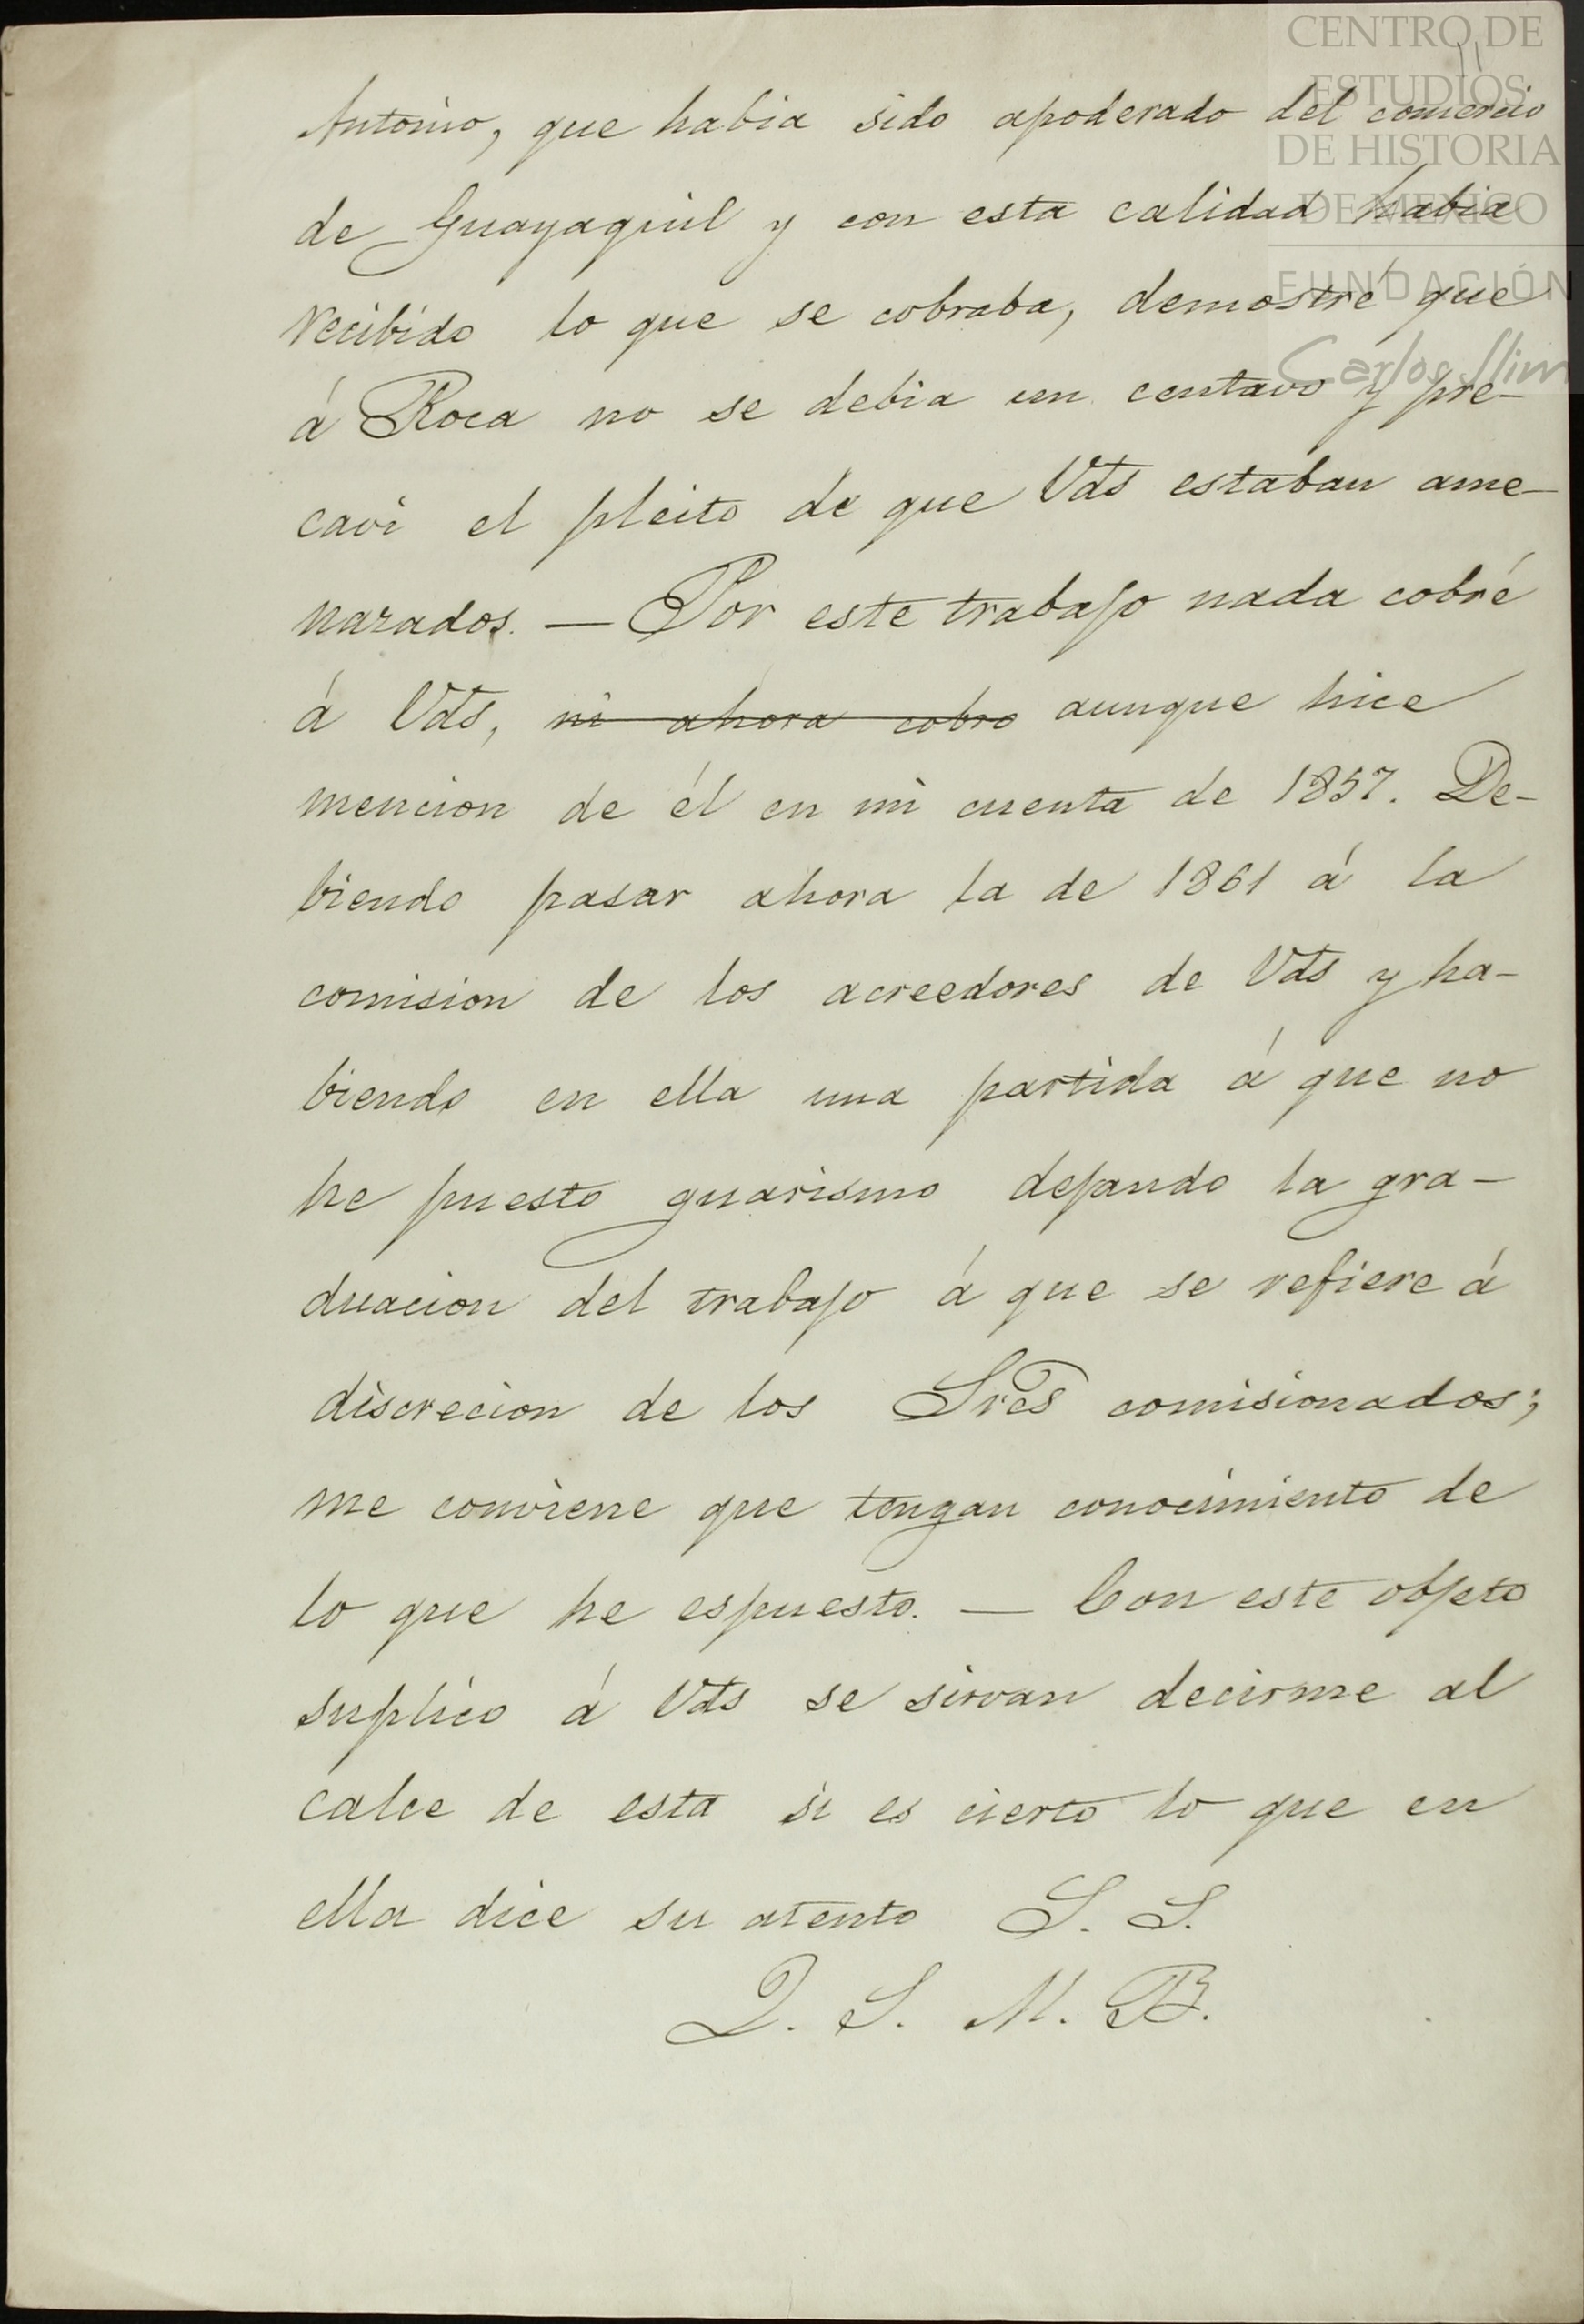 CENTRO DE
ESTUDIOS
DE HISTORIA
DE MEXICO
FUNDACIÓN
Carlos Slim
11
Antonio, que habia sido apoderado del comercio
de Guayaquil y con esta calidad habia
recibido lo que se cobraba, demostré que
á Roca no se debia un centavo y pre-
cavi el pleito de que Vds estaban ame-
nazados. — Por este trabajo nada cobré
á Vds, ni ahora cobro aunque hice
mencion de él en mi cuenta de 1857. De-
biendo pasar ahora la de 1861 á la
comision de los acreedores de Vds y ha-
biendo en ella una partida á que no
he puesto guarismo dejando la gra-
duacion del trabajo á que se refiere á
discrecion de los Sres comisionados;
me conviene que tengan conocimiento de
lo que he espuesto. — Con este objeto
suplico á Vds se sirvan decirme al
calce de esta si es cierto lo que en
ella dice su atento S. S.
Q. S. M. B.